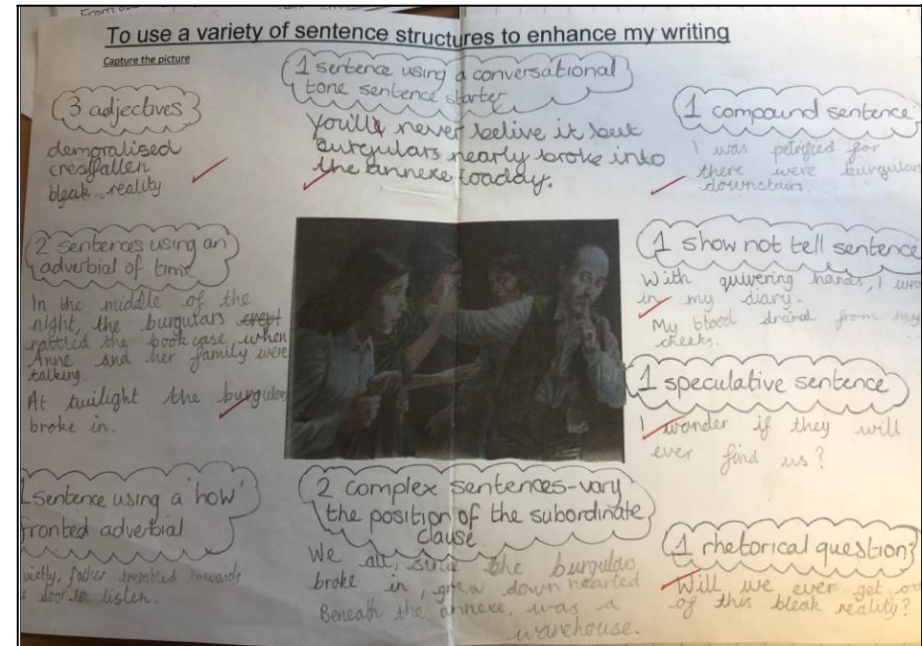 To use a variety of sentence structures to enhance my writing
Capture the picture
3 adjectives
demoralised
cresfallen
bleak reality
1 sentence using a conversational
tone sentence starter
You'll never belive it but
burgulars nearly broke into
the annexe toaday.
1 compound sentence
I was petrified for
there were burgulars
downstairs.
2 sentences using an
adverbial of time
In the middle of the
night, the burgulars crept
rattled the bookcase, when
Anne and her family were
talking.
At twilight the burgulars
broke in.
1 show not tell sentence
With quivering hands, I
in my diary.
My blood drained from my
cheeks.
1 speculative sentence
I wonder if they will
ever find us?
sentence using a 'how'
fronted adverbial
father trembled towards
door to listen.
2 complex sentences-vary
the position of the subordinate
clause
We all, since the burgulars
broke in, grew down hearted
Beneath the annexe, was a
warehouse.
1 rhetorical question?
Will we ever get
of this bleak reality?